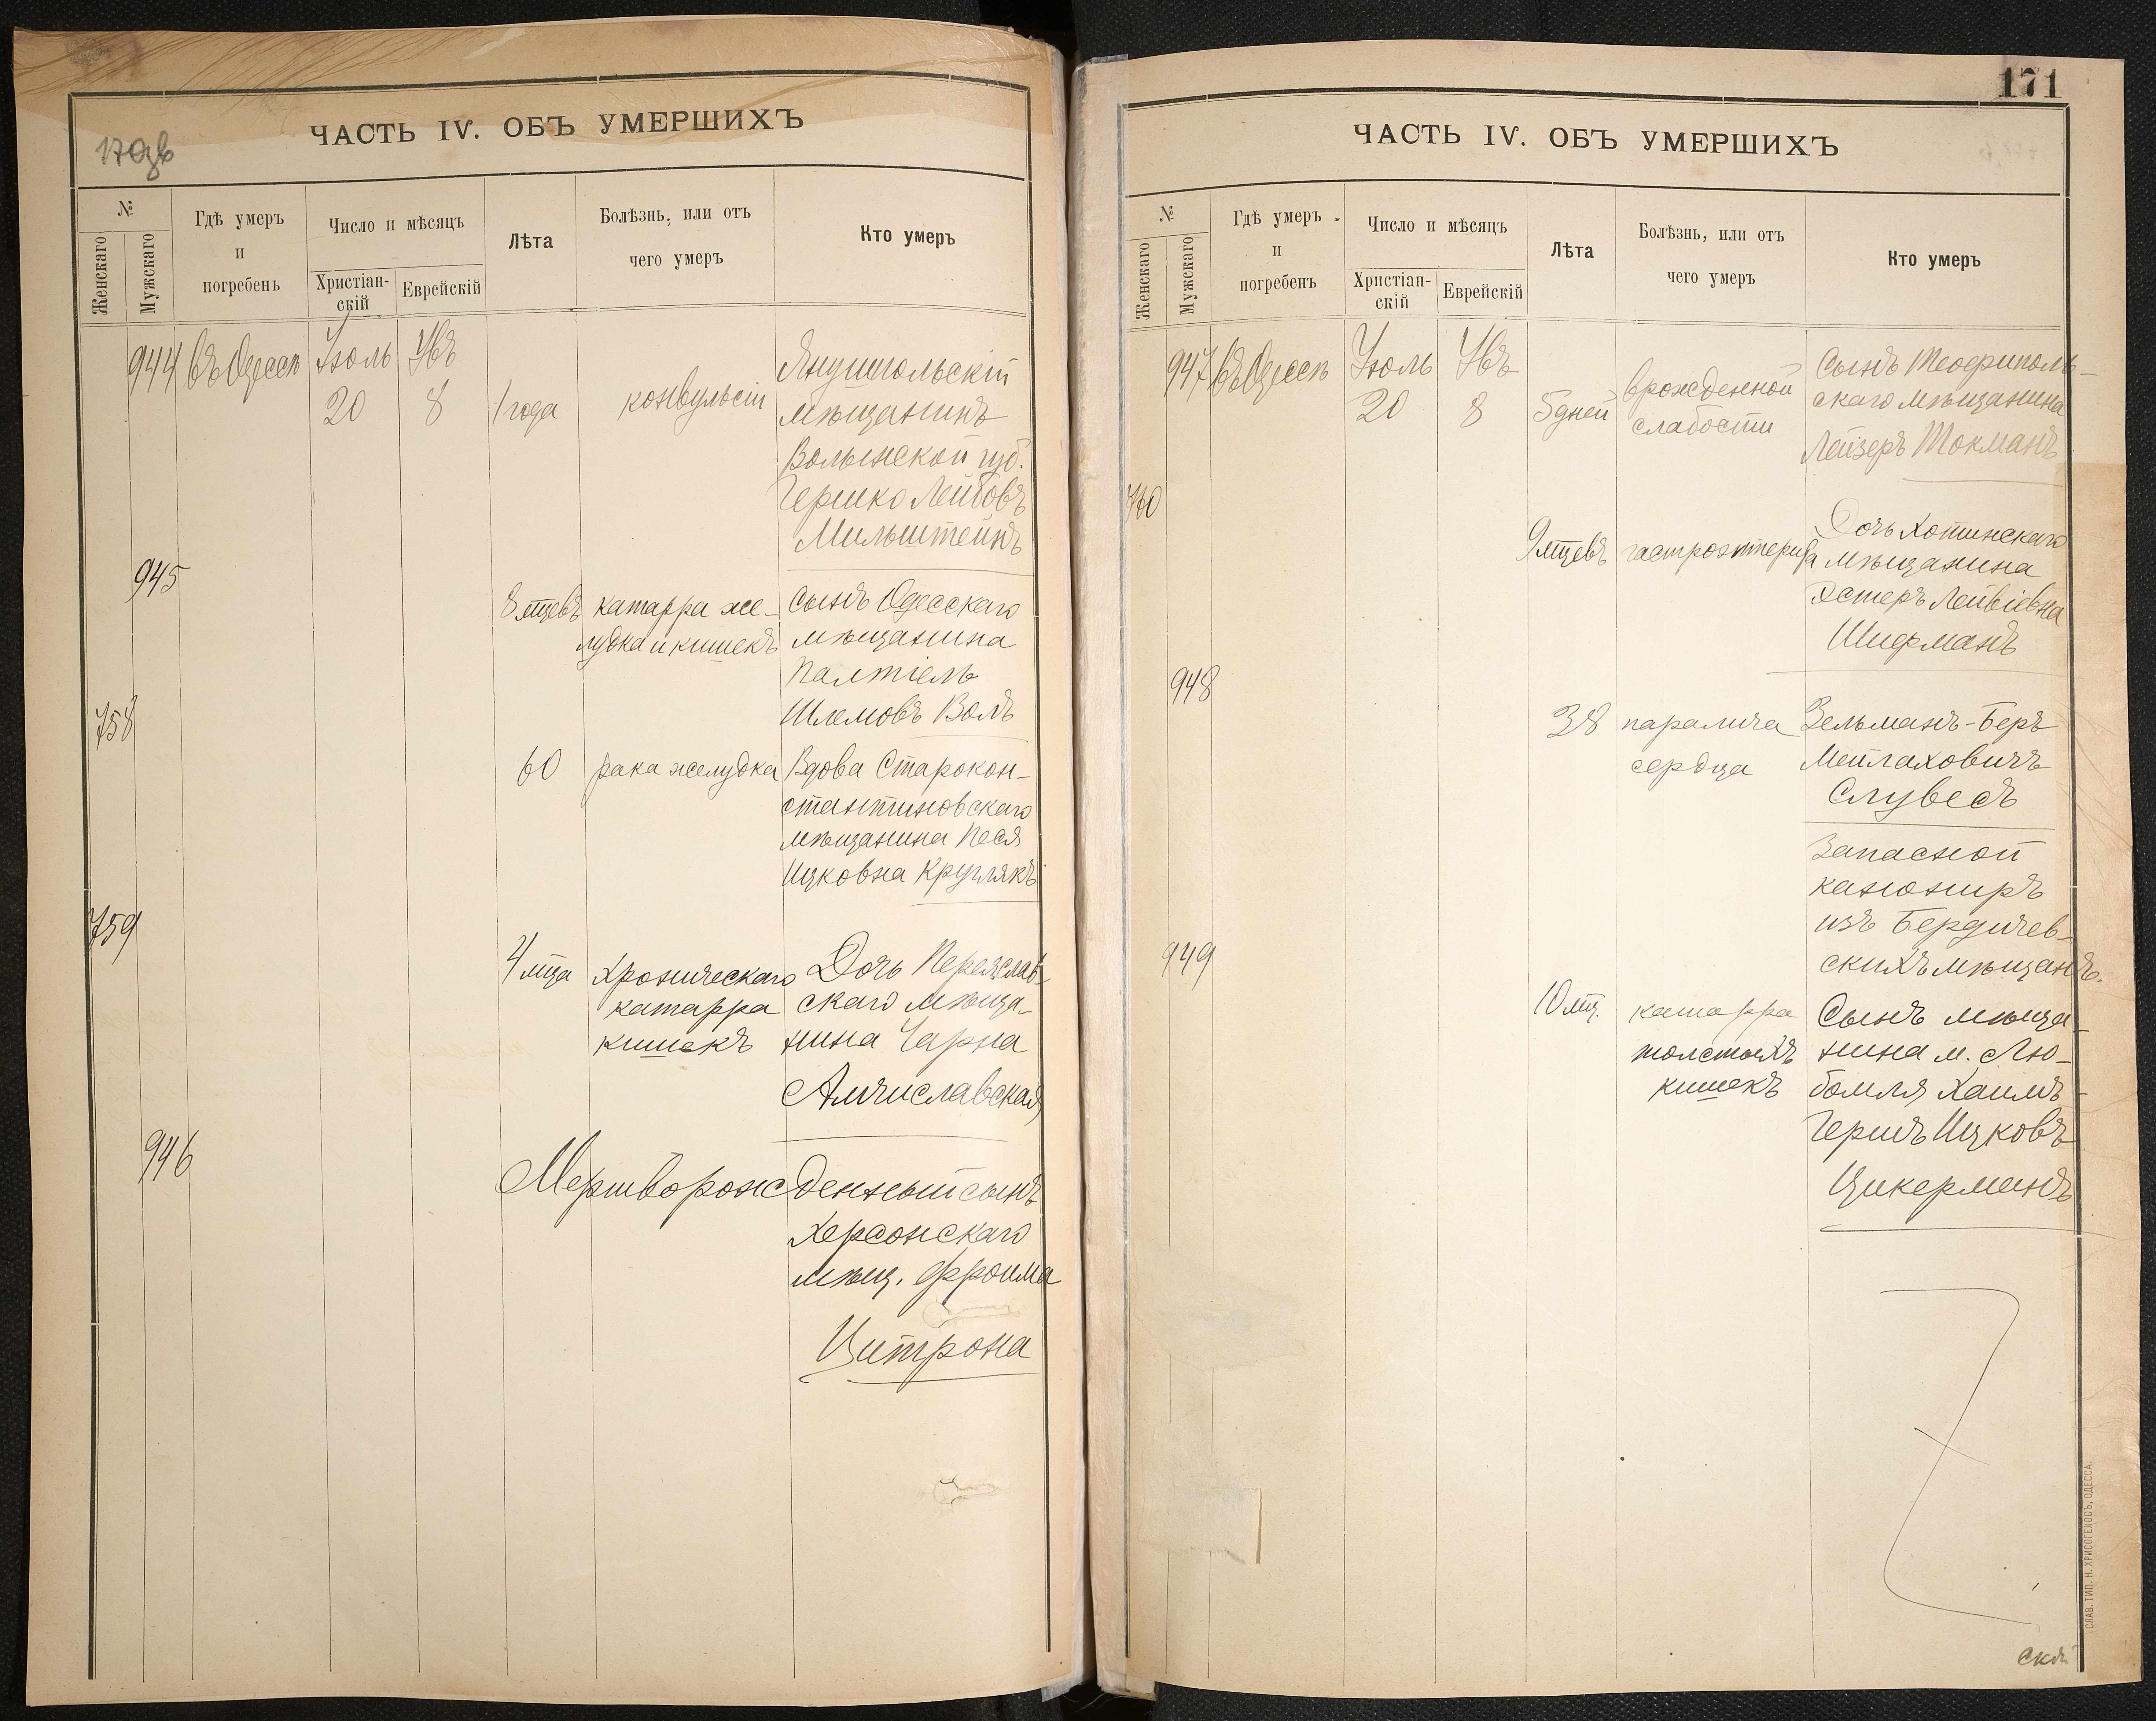 170 об
ЧАСТЬ IV. ОБЪ УМЕРШИХЪ
№
Женскаго
Мужскаго
Гдѣ умеръ
и
погребенъ
Число и мѣсяцъ
Христіан-
скій
Еврейскій
Лѣта
Болѣзнь, или отъ
чего умеръ
Кто умеръ
944 въ Одессѣ Іюль Увъ
20 8 1 года конвульсій
Янушпольскій
мѣщанинъ
Волынской губ.
Гершко Лейбовъ
Мильштейнъ
945
8 мцевъ катарра же- Сынъ Одесскаго
лудка и кишекъ мѣщанина
Палтіель
Шлемовъ Волъ
758
60 рака желудка Вдова Старокон-
стантиновскаго
мѣщанина Песя
Ицковна Круглякъ
759
4 мца Хроническаго Дочь Переяслав-
катарра скаго мѣща-
кишекъ нина Чарна
Амчиславская
946
Мертворожденный сынъ
Херсонскаго
мѣщ. Фроима
Цитрона
171
ЧАСТЬ IV. ОБЪ УМЕРШИХЪ
№
Женскаго
Мужскаго
Гдѣ умеръ
и
погребенъ
Число и мѣсяцъ
Христіан-
скій
Еврейскій
Лѣта
Болѣзнь, или отъ
чего умеръ
Кто умеръ
947 въ Одессѣ Іюль Увъ
20 8 5 дней врожденной
слабости
Сынъ Теофиполь-
скаго мѣщанина
Лейзеръ Токманъ
760
9 мцевъ гастроэнтерита
Дочь Хотинскаго
мѣщанина
Эстеръ Лейвіевна
Шифманъ
948
38 паралича Зельманъ-Беръ
сердца Мейлаховичъ
Слувесъ
Запасной
канониръ
изъ Бердичев-
скихъ мѣщанъ.
949
10 мц. катарра Сынъ мѣща-
толстыхъ нина м. Лю-
кишекъ бомля Хаимъ-
Гершъ Ицковъ
Цикерманъ
скій
СЛАВ. ТИП. Н. ХРИСОГЕЛОСЪ, ОДЕССА.